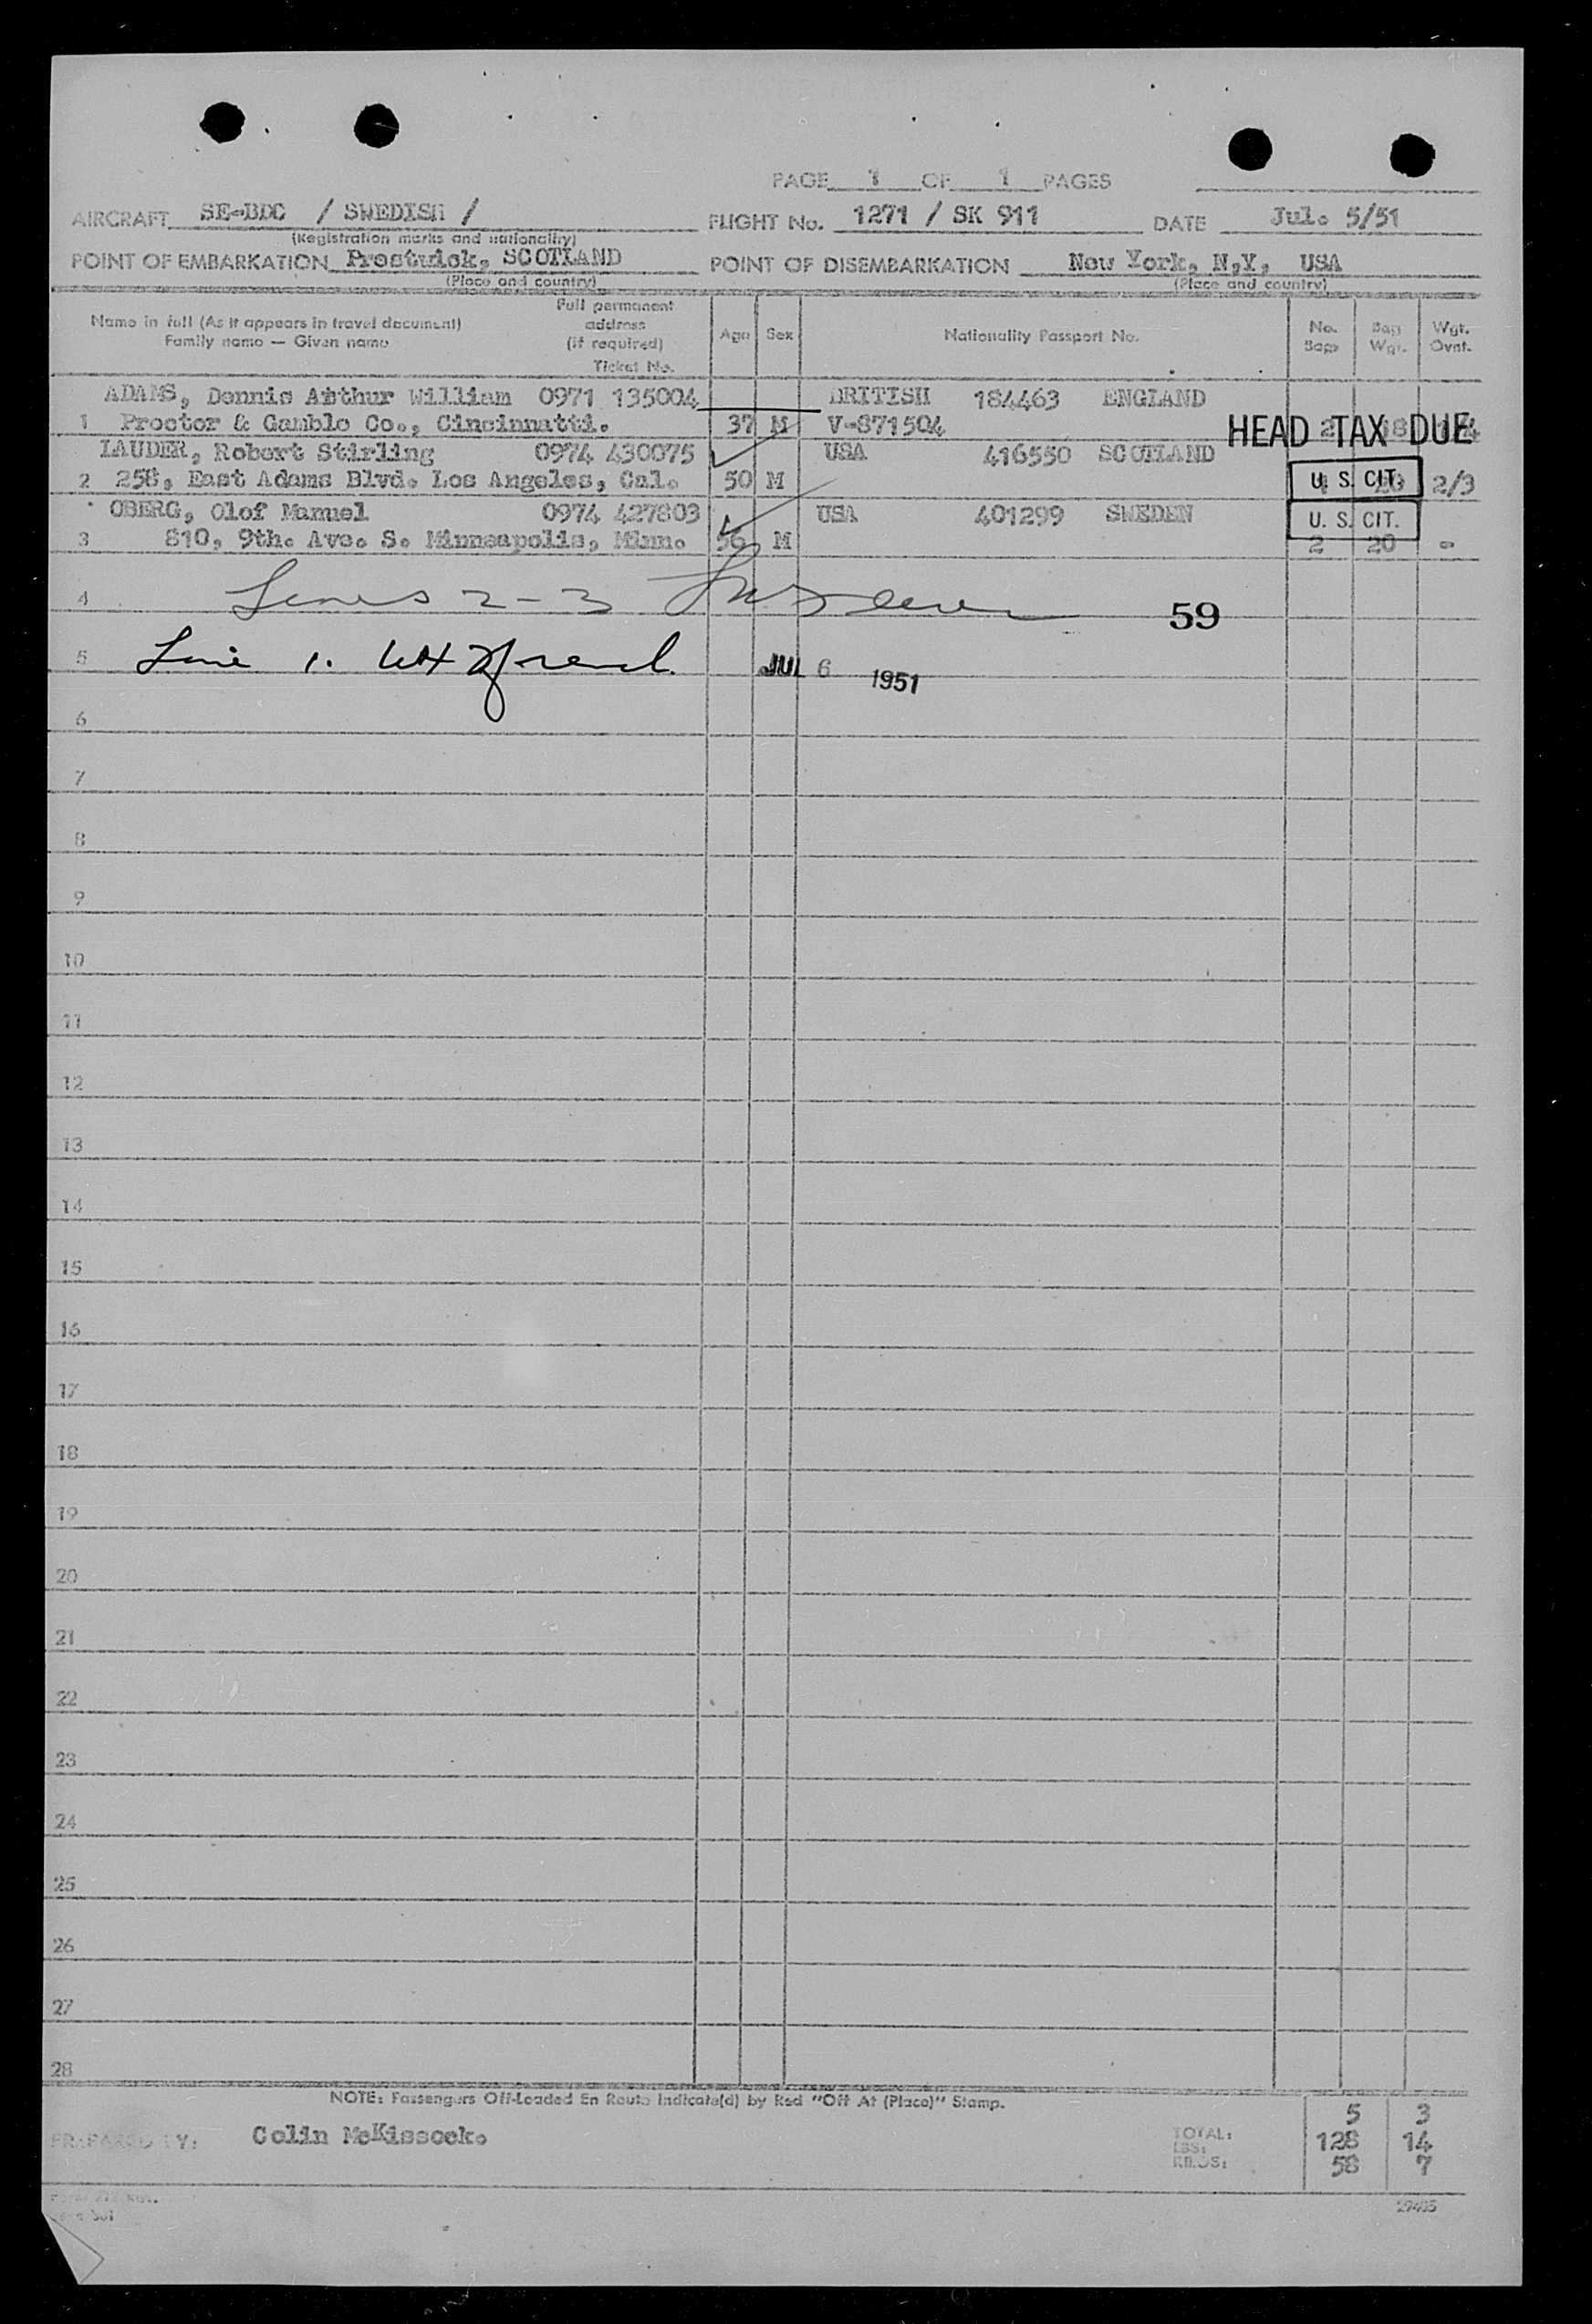 PAGE 1 OF 1 PAGES
AIRCRAFT SE-BDC / SWEDISH / FLIGHT No. 1271 / SK 911 DATE Jul. 5/51
(Registration marks and nationality)
POINT OF EMBARKATION Prestwick, SCOTLAND POINT OF DISEMBARKATION New York, N,Y, USA
(Place and country) (Place and country)
Name in full (As it appears in travel document) Family name — Given name
Full permanent address (if required) Ticket No.
Age Sex Nationality Passport No. No. Bags Bag Wgt. Wgt. Ovnt.
ADAMS, Dennis Arthur William 0971 135004 BRITISH 184463 ENGLAND
1 Proctor & Gamble Co., Cincinnatti. 37 M V-871504 HEAD TAX DUE
LAUDER, Robert Stirling 0974 430075 USA 416550 SCOTLAND
2 258, East Adams Blvd. Los Angeles, Cal. 50 M U. S. CIT. 2/3
OBERG, Olof Manuel 0974 427803 USA 401299 SWEDEN U. S. CIT.
3 810, 9th. Ave. S. Minneapolis, Minn. 56 M 2 20 -
4 Lines 2-3 59
5 Line 1. JUL 6 1951
6
7
8
9
10
11
12
13
14
15
16
17
18
19
20
21
22
23
24
25
26
27
28
NOTE: Passengers Off-Loaded En Route Indicate(d) by Red "Off At (Place)" Stamp.
PREPARED BY: Colin McKissock.
TOTAL: 5 3
LBS: 128 14
KILOS: 58 7
29405